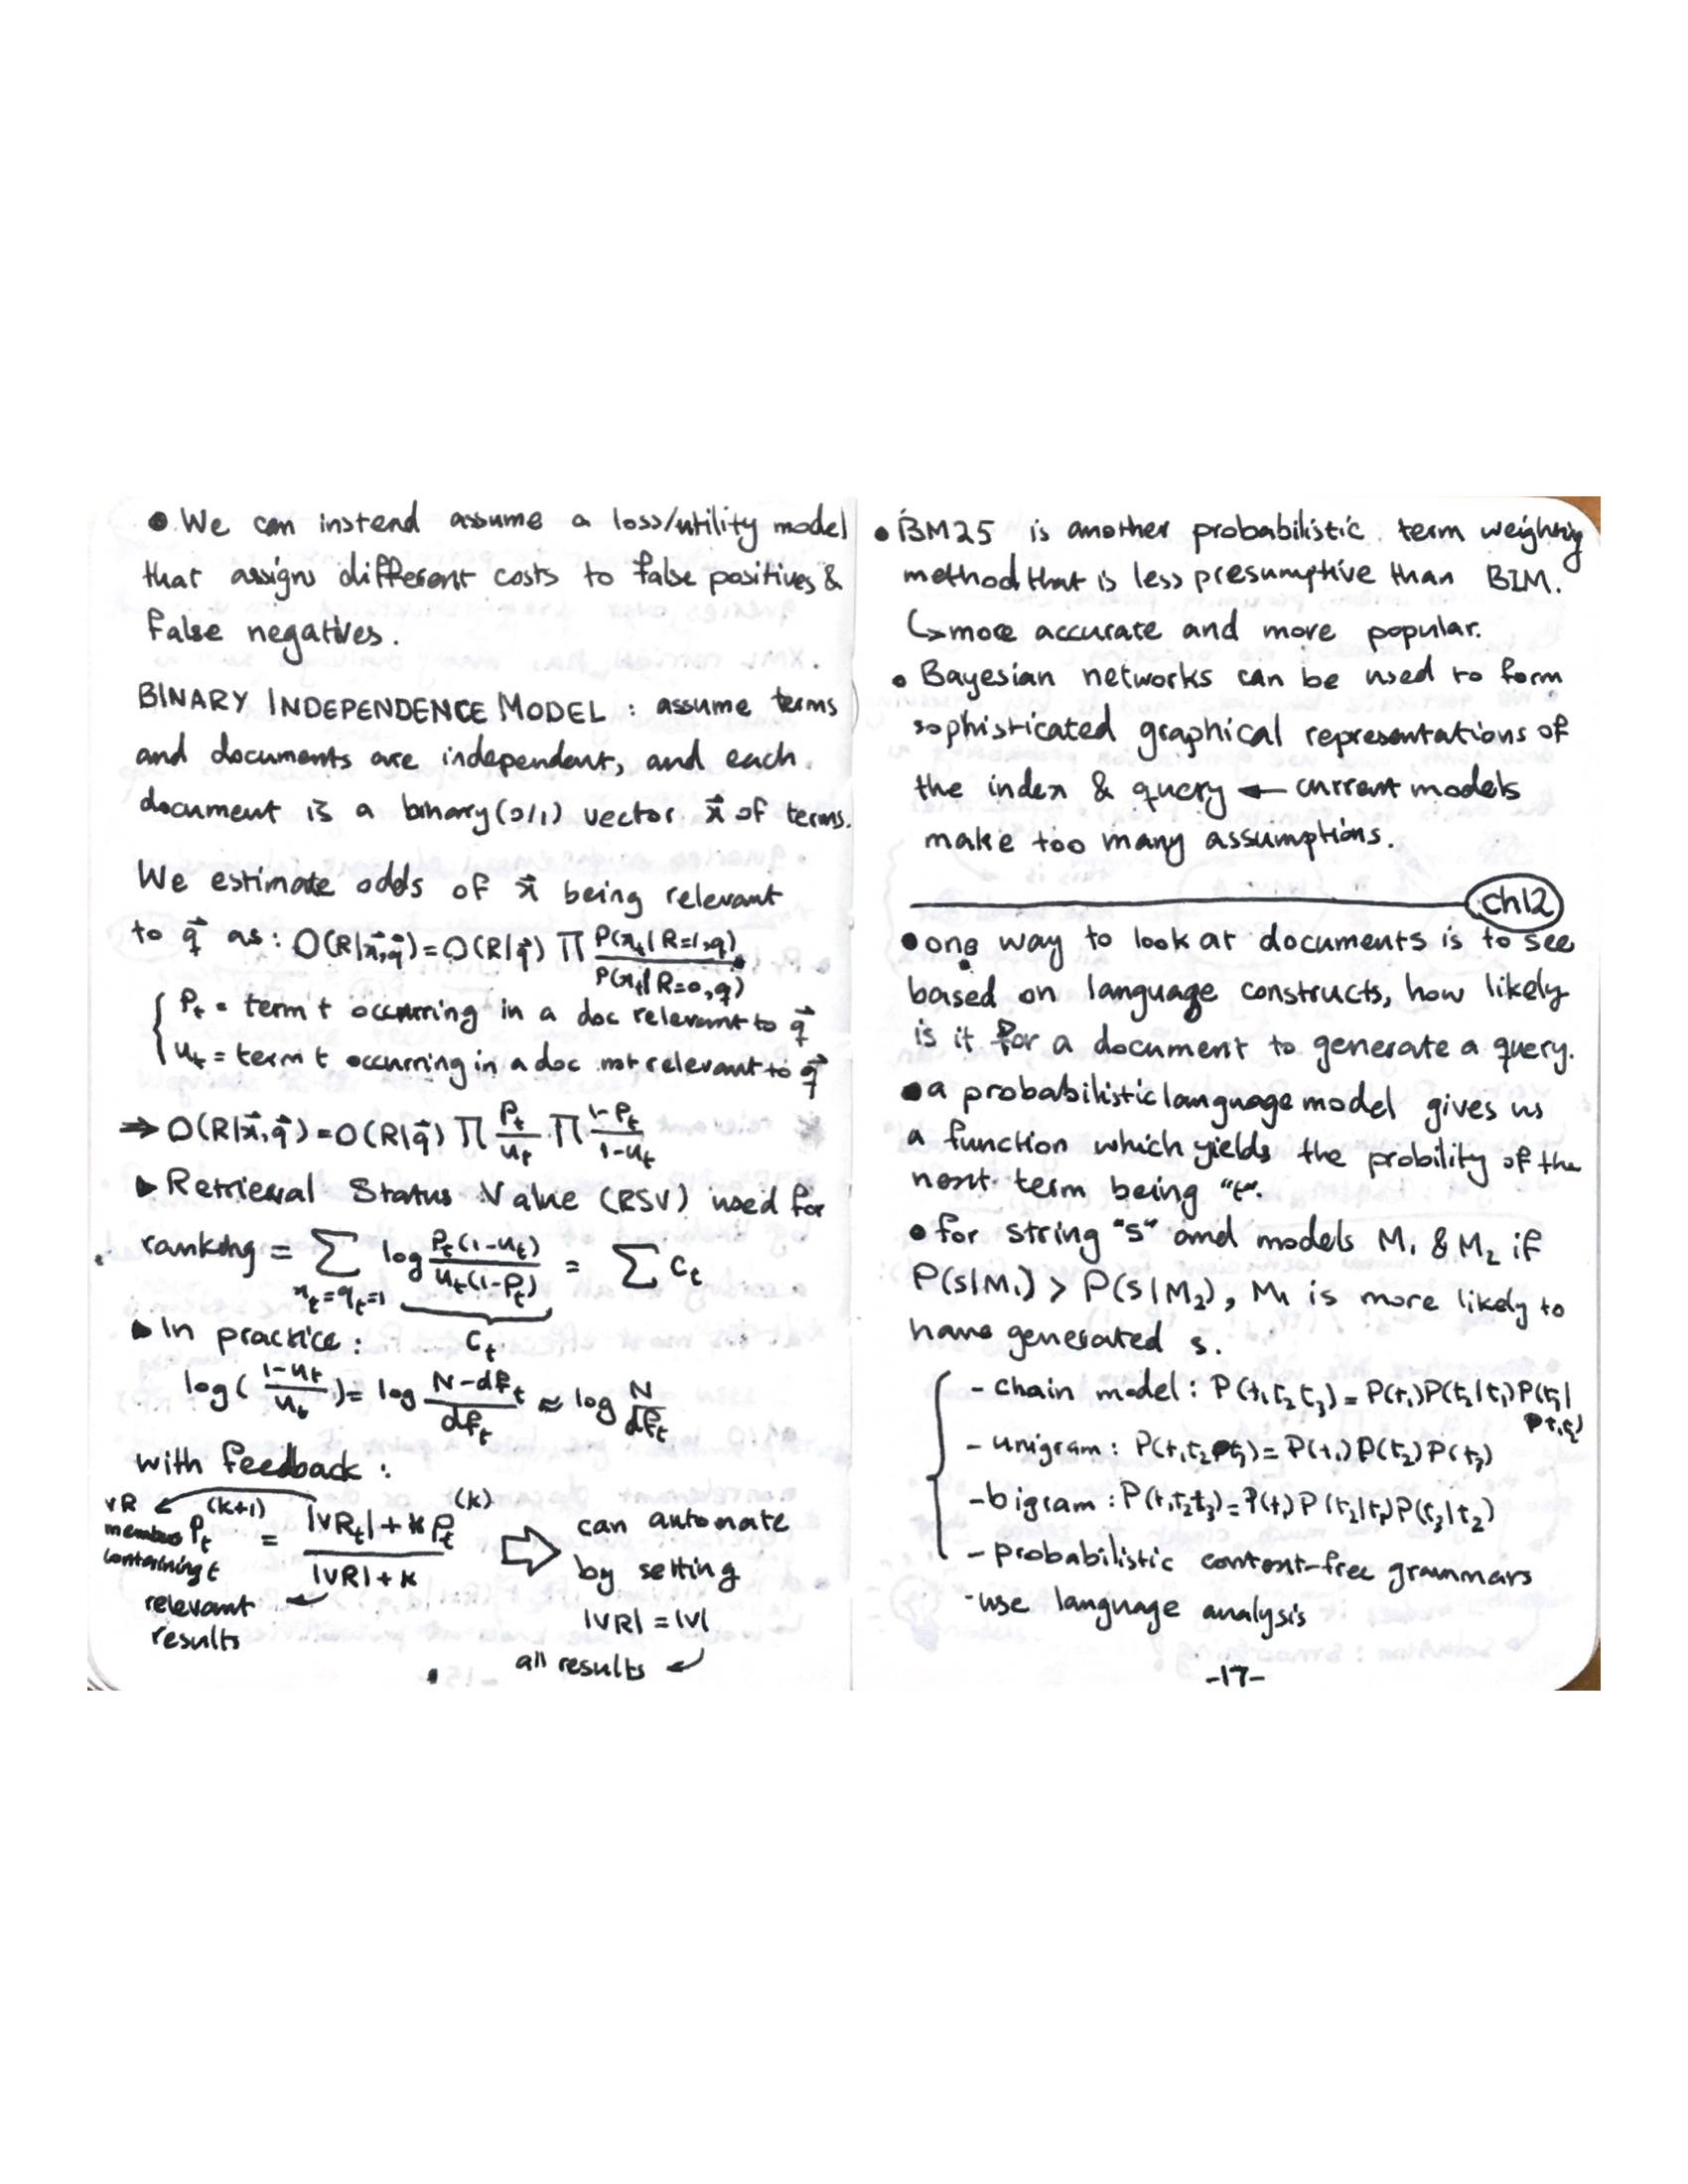 • We can instead assume a loss/utility model
that assigns different costs to false positives &
false negatives.
BINARY INDEPENDENCE MODEL: assume terms
and documents are independent, and each
document is a binary (0/1) vector x⃗ of terms.
We estimate odds of x⃗ being relevant
to q⃗ as: O(R|x⃗,q⃗) = O(R|q⃗) ∏ P(x_t|R=1,q) / P(x_t|R=0,q)
P_t = term t occurring in a doc relevant to q⃗
u_t = term t occurring in a doc not relevant to q⃗
⇒ O(R|x⃗,q⃗) = O(R|q⃗) ∏ P_t/u_t · ∏ 1-P_t/1-u_t
▸ Retrieval Status Value (RSV) used for
ranking = ∑ x_t=q_t=1 log P_t(1-u_t) / u_t(1-P_t) = ∑ C_t
C_t
▸ In practice:
log(1-u_t / u_t) = log N-df_t / df_t ≈ log N / df_t
with feedback:
P_t^(k+1) = |VR_t| + κ P_t^(k) / |VR| + κ ⇒ can automate
by setting
|VR| = |V|
VR
members
containing t
relevant
results
all results
• BM25 is another probabilistic term weighting
method that is less presumptive than BIM.
↳ more accurate and more popular.
• Bayesian networks can be used to form
sophisticated graphical representations of
the index & query ← current models
make too many assumptions.
ch12
• one way to look at documents is to see
based on language constructs, how likely
is it for a document to generate a query.
• a probabilistic language model gives us
a function which yields the probility of the
next term being "t".
• for string "s" and models M₁ & M₂ if
P(s|M₁) > P(s|M₂), M₁ is more likely to
have generated s.
- chain model: P(t₁t₂t₃) = P(t₁)P(t₂|t₁)P(t₃|
t₁t₂)
- unigram: P(t₁t₂t₃) = P(t₁)P(t₂)P(t₃)
- bigram: P(t₁t₂t₃) = P(t₁)P(t₂|t₁)P(t₃|t₂)
- probabilistic context-free grammars
- use language analysis
-17-